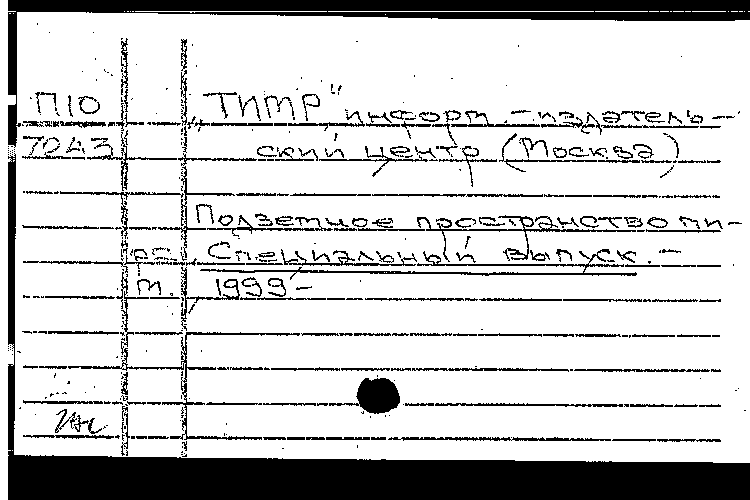 П10
7043
"ТИМР" информ.-издатель-
ский центр (Москва)
Подземное пространство ми-
ра. Специальный выпуск. -
М. 1999-